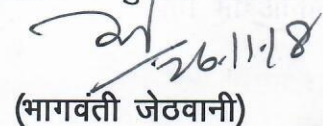 26.11.18
(भागवंती जेठवानी)